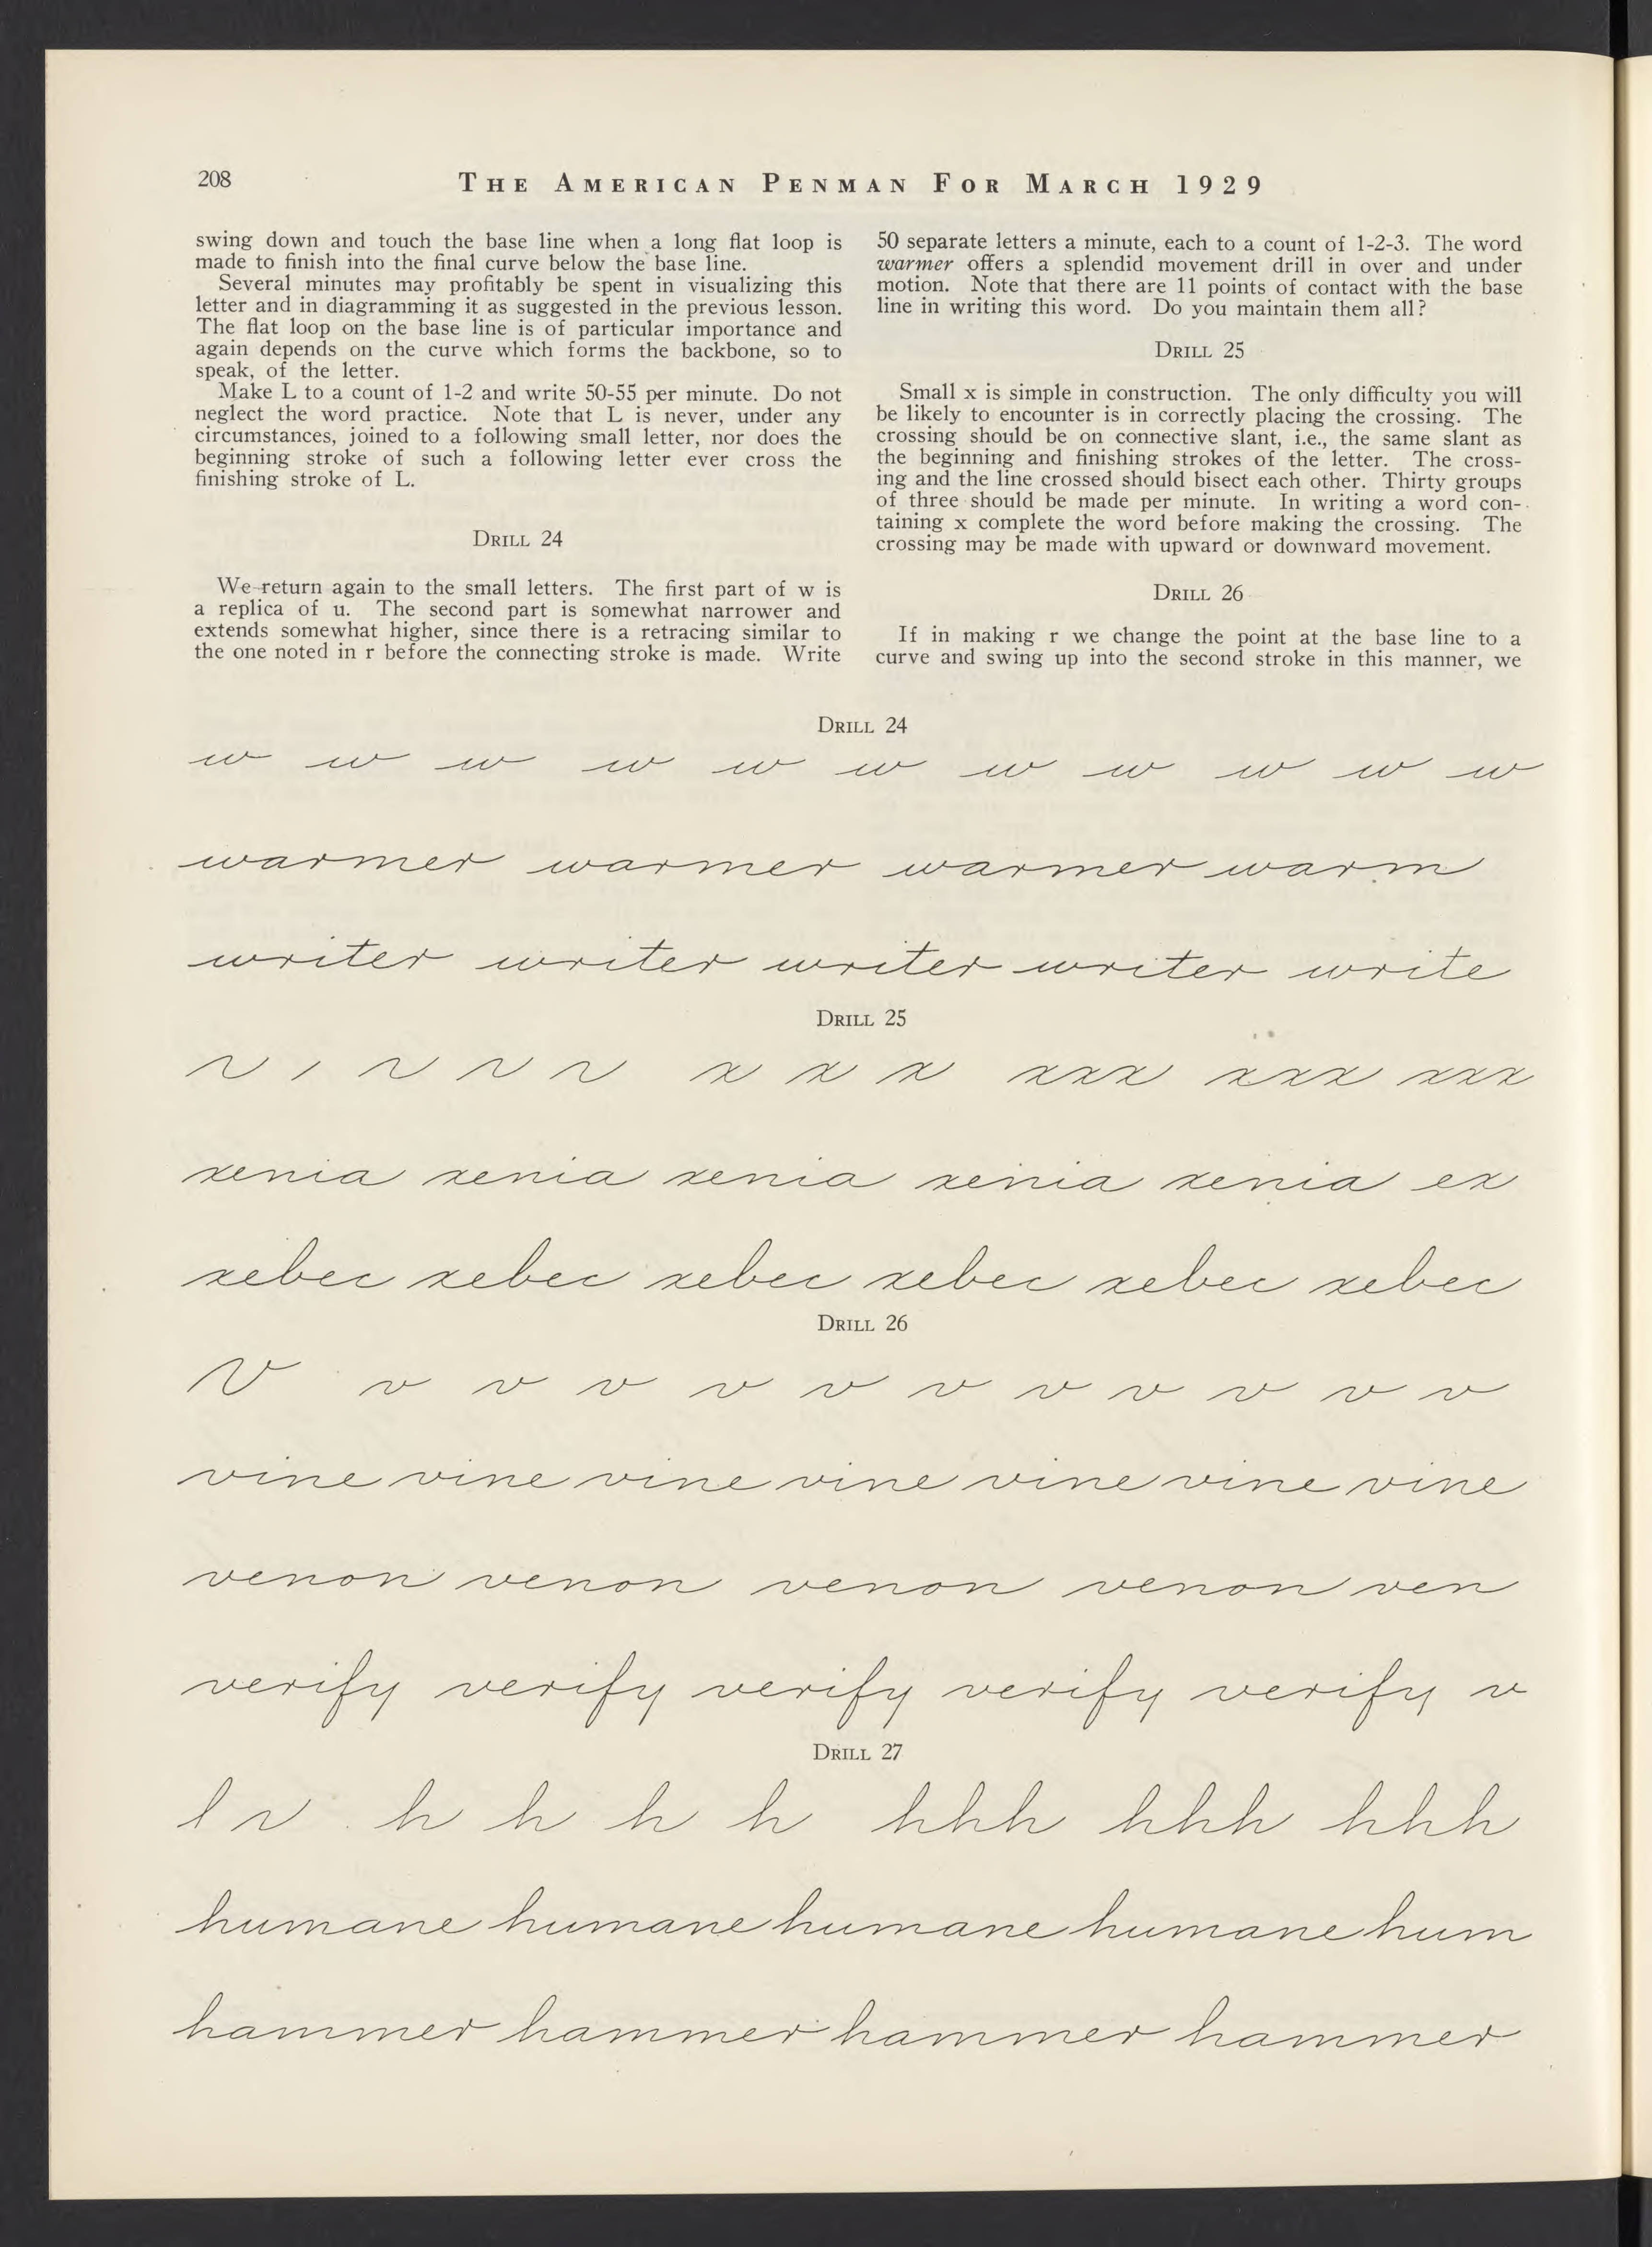 208
THE AMERICAN PENMAN FOR MARCH 1929
swing down and touch the base line when a long flat loop is
made to finish into the final curve below the base line.
Several minutes may profitably be spent in visualizing this
letter and in diagramming it as suggested in the previous lesson.
The flat loop on the base line is of particular importance and
again depends on the curve which forms the backbone, so to
speak, of the letter.
Make L to a count of 1-2 and write 50-55 per minute. Do not
neglect the word practice. Note that L is never, under any
circumstances, joined to a following small letter, nor does the
beginning stroke of such a following letter ever cross the
finishing stroke of L.
DRILL 24
We return again to the small letters. The first part of w is
a replica of u. The second part is somewhat narrower and
extends somewhat higher, since there is a retracing similar to
the one noted in r before the connecting stroke is made. Write
50 separate letters a minute, each to a count of 1-2-3. The word
warmer offers a splendid movement drill in over and under
motion. Note that there are 11 points of contact with the base
line in writing this word. Do you maintain them all?
DRILL 25
Small x is simple in construction. The only difficulty you will
be likely to encounter is in correctly placing the crossing. The
crossing should be on connective slant, i.e., the same slant as
the beginning and finishing strokes of the letter. The cross-
ing and the line crossed should bisect each other. Thirty groups
of three should be made per minute. In writing a word con-
taining x complete the word before making the crossing. The
crossing may be made with upward or downward movement.
DRILL 26
If in making r we change the point at the base line to a
curve and swing up into the second stroke in this manner, we
DRILL 24
w w w w w w w w w w w
warmer warmer warmer warm
writer writer writer writer write
DRILL 25
x x x xxx xxx xxx
xenia xenia xenia xenia xenia ex
xebec xebec xebec xebec xebec xebec
DRILL 26
v v v v v v v v v v v v
vine vine vine vine vine vine vine
venon venon venon venon ven
verify verify verify verify verify v
DRILL 27
l h h h h hhh hhh hhh
humane humane humane humane hum
hammer hammer hammer hammer